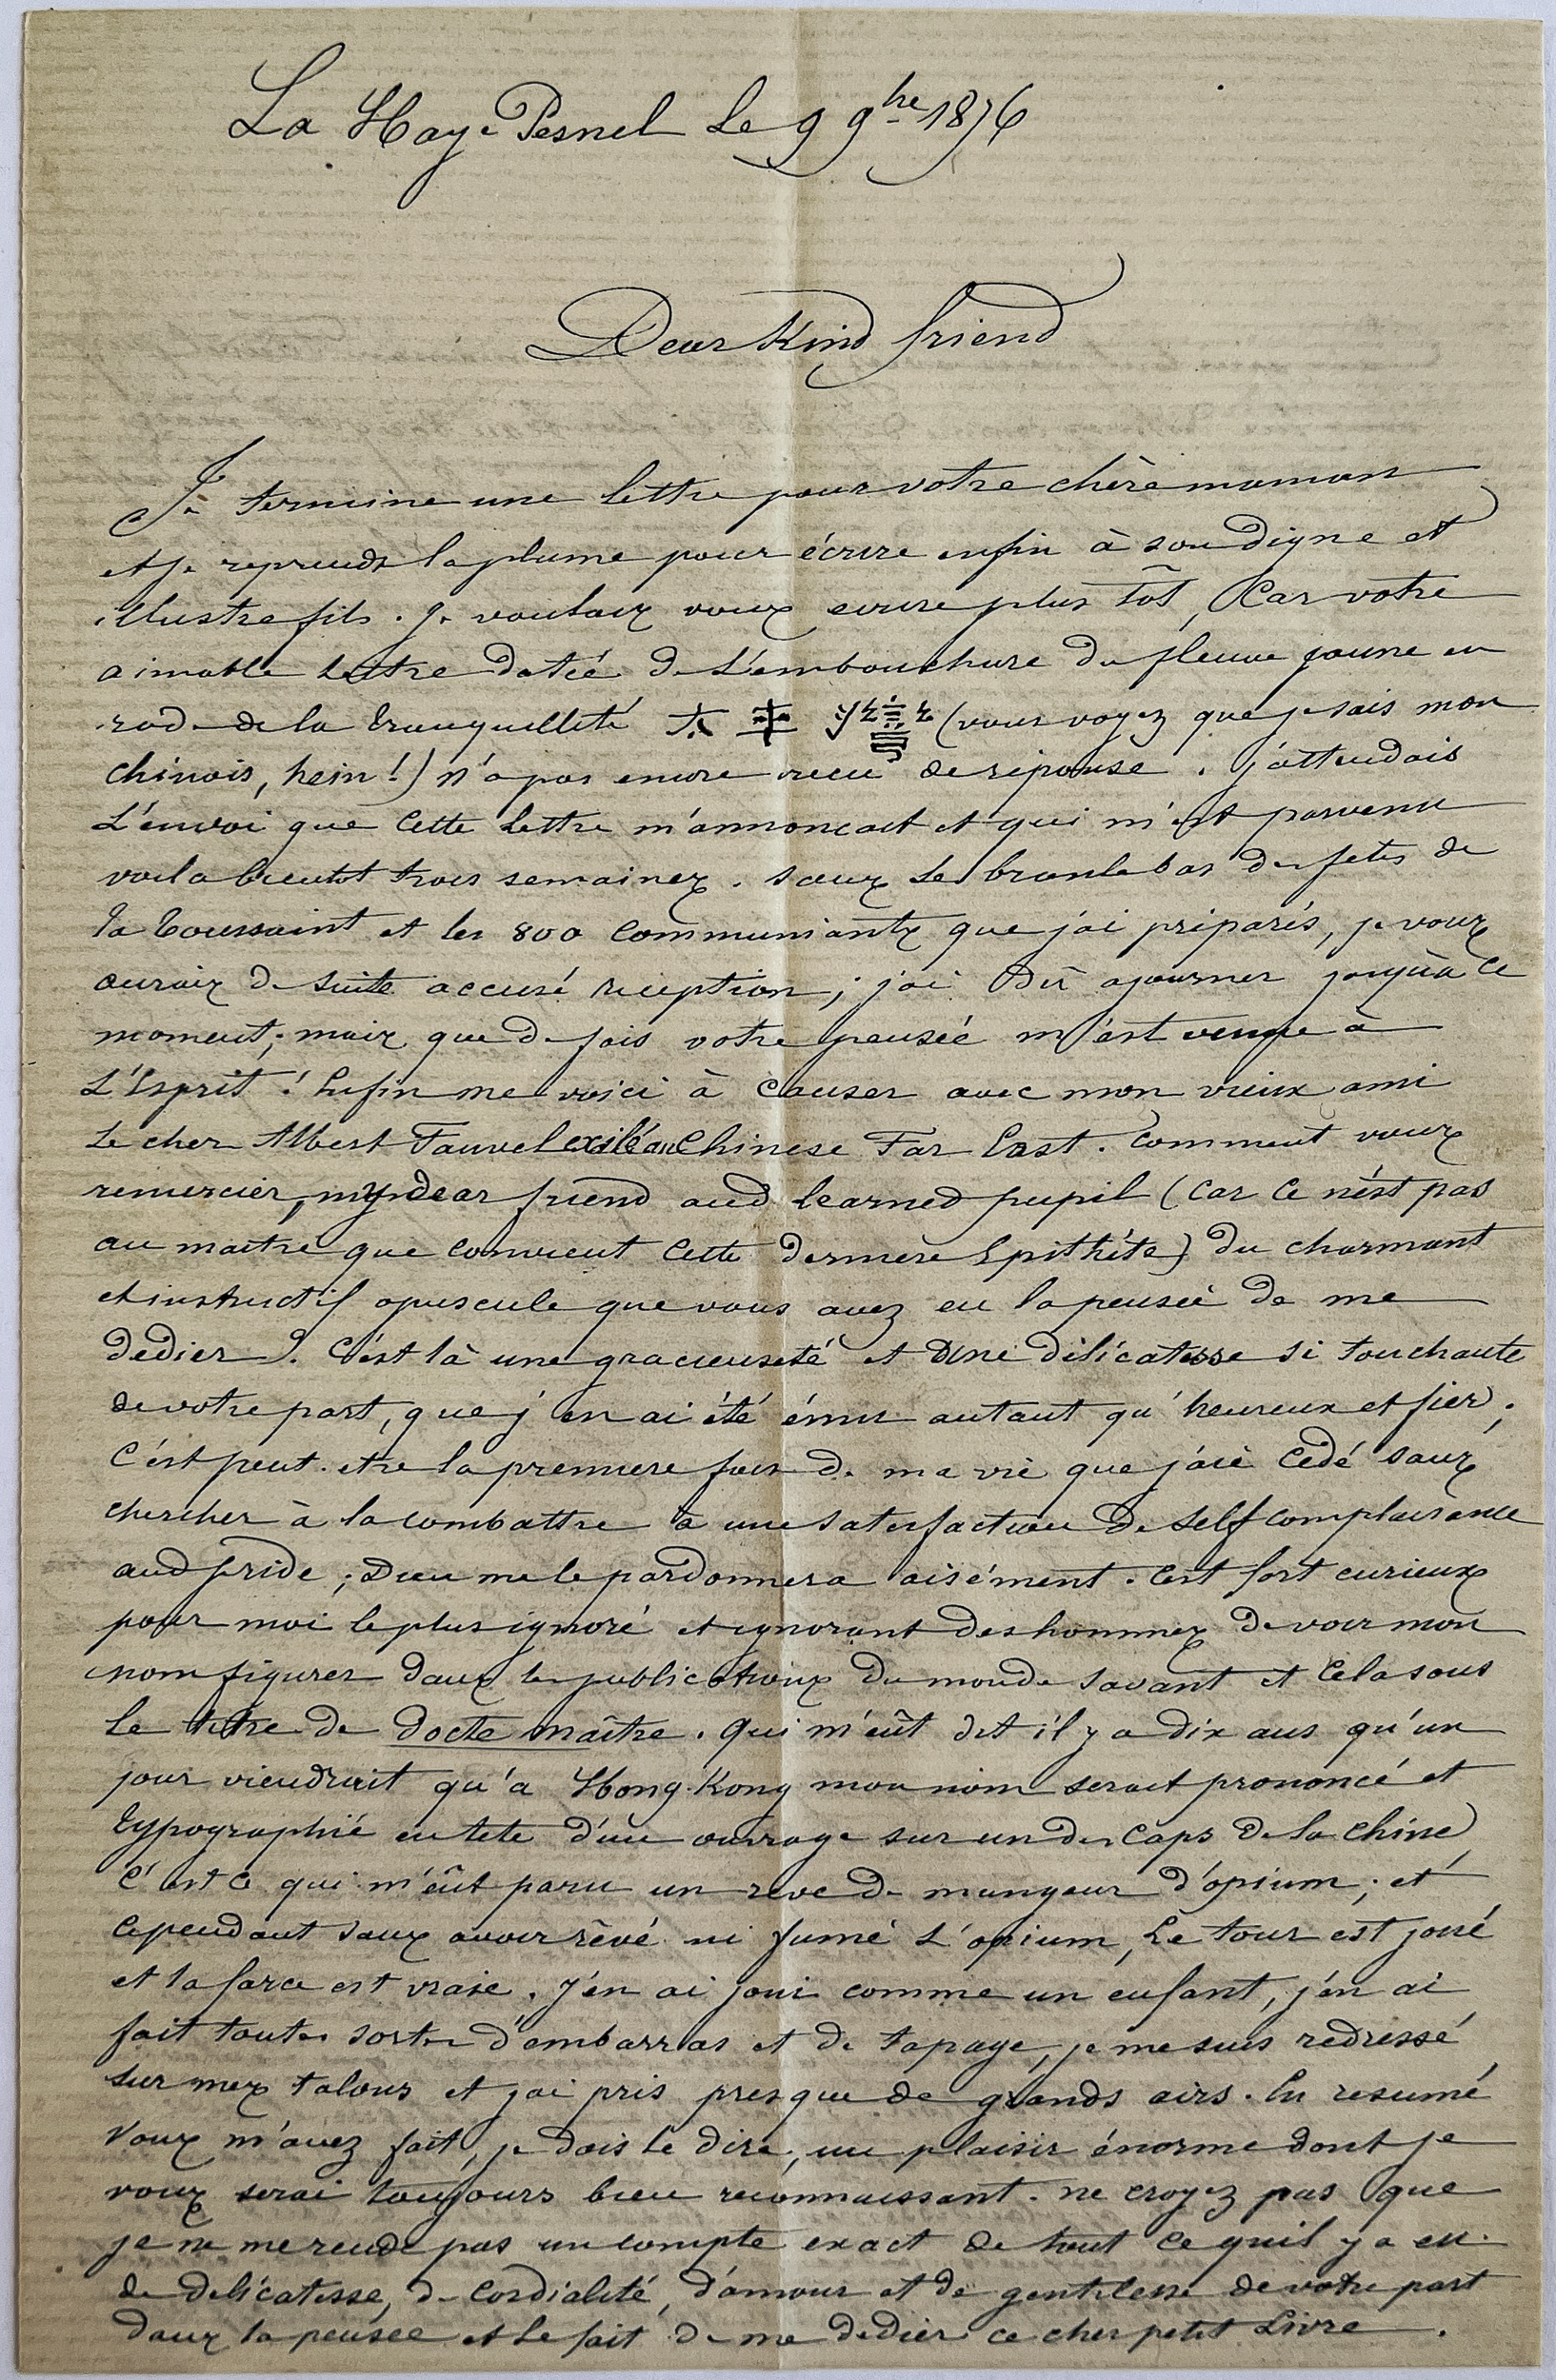 La Haye-Pesnel Le 9 9bre 1876
Dear Kind friend
Je termine une lettre pour votre chère maman
et je reprends la plume pour écrire enfin à son digne et
illustre fils. Je voulais vous ecrire plus tôt, Car votre
aimable lettre datée de L'embouchure du fleuve jaune en
rade de la tranquillité 太平 (vous voyez que je sais mon
chinois, hein!) n'a pas encore recu de réponse. j'attendais
L'envoi que Cette lettre m'annoncait et qui m'est parvenu
voila bientot trois semaines. sans Le branle bas des fetes de
la Toussaint et les 800 Communiants que j'ai préparés, je vous
aurais de suite accusé réception; j'ai Dû ajourner jusqu'à ce
moment; mais que de fois votre pensée m'est venue à
L'Esprit! Enfin me voici à Causer avec mon vieux ami
Le cher Albert Fauvel exilé au Chinese Far East. Comment vous
remercier, my dear friend and learned pupil (Car Ce n'est pas
au maitre que convient Cette derniere Epithéte) du charmant
et instructif opuscule que vous avez eu la pensée de me
dedier. C'est là une gracieuseté et une délicatesse si touchante
de votre part, que j'en ai été ému autant qu'heureux et fier;
C'est peut-etre la premiere fois de ma vie que j'aie Cédé sans
chercher à la combattre à une satisfaction de self complaisance
and pride; Dieu me le pardonnera aisément. C'est fort curieux
pour moi le plus ignoré et ignorant des hommes de voir mon
nom figurer dans les publications du monde savant et Cela sous
Le titre de docte maître. Qui m'eût dit il y a dix ans qu'un
jour viendrait qu'a Hong-Kong mon nom serait prononcé et
typographié en tete d'un ouvrage sur un des Caps de la Chine
C'est ce qui m'eût paru un reve de mangeur d'opium; et
Cependant sans avoir rêvé ni fumé L'opium, Le tour est joué
et la farce est vraie. J'en ai joui comme un enfant, j'en ai
fait toutes sortes d'embarras et de tapage, je me suis redressé
sur mes talons et j'ai pris presque de grands airs. En resumé
Vous m'avez fait, je dois Le dire, un plaisir énorme dont je
vous serai toujours bien reconnaissant. ne croyez pas que
je ne me rende pas un compte exact de tout Ce qu'il y a eu
de delicatesse, de Cordialité, d'amour et de gentilesse de votre part
dans la pensée et Le fait de me dedier ce cher petit Livre.